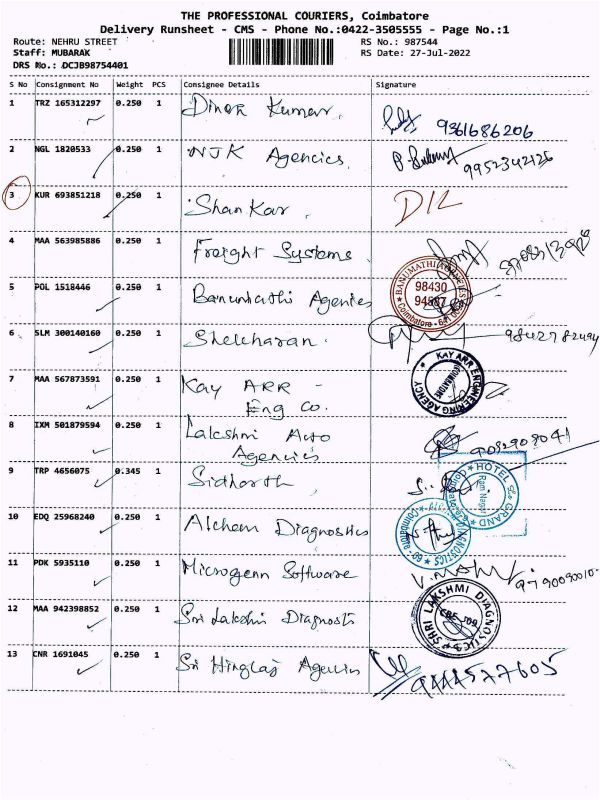 THE PROFESSIONAL COURIERS, Coimbatore
Delivery Runsheet - CMS - Phone No.:0422-3505555 - Page No.:1
Route: NEHRU STREET RS No.: 987544
Staff: MUBARAK RS Date: 27-Jul-2022
DRS No.: DCJB98754401
S No Consignment No Weight PCS Consignee Details Signature
1 TRZ 165312297 0.250 1 Dinok Kumar. 9361686206
2 NGL 1820533 0.250 1 NJK Agencies. 9952342126
3 KUR 693851218 0.250 1 Shankar. D/L
4 MAA 563985886 0.250 1 Freight Systems
5 POL 1518446 0.250 1 Banumathi Agencies BANUMATHI 98430 94587 Coimbatore
6 SLM 300140160 0.250 1 Shekharan.
7 MAA 567873591 0.250 1 Kay ARR - KAY ARR ENGINEERING AGENCY COIMBATORE
Eng Co.
8 IXM 501879594 0.250 1 Lakshmi Auto 9092909041
Agencies
9 TRP 4656075 0.345 1 Sidharth HOTEL Le GRAND Ram Nagar
10 EDQ 25968240 0.250 1 Alchem Diagnostics
11 PDK 5935110 0.250 1 Microgenn Software V.MANI. 9790090010
12 MAA 942398852 0.250 1 Sri Lakshmi Diagnosti SHRI LAKSHMI DIAGNOSTICS CBE
13 CNR 1691045 0.250 1 Sri Hinglaj Agencies 9444577605